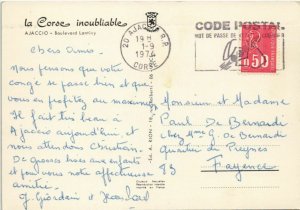 la Corse inoubliable
AJACCIO - Boulevard Lantivy
20 AJACCIO R.P.
19 H
1-9
1974
CORSE
CODE POSTAL
MOT DE PASSE DE
0.50
Chers amis.
Nous pensons que votre
congé se passe bien et que
vous en profitez au maximum
Il fait très beau à
Ajaccio aujourd'hui, et
nous attendons Christian.
De grosses bises aux enfants
et pour vous notre affectueuse
amitié.
G. Giordain et
Monsieur et Madame
Paul De Bernardi
chez Mme G. de Bernardi
Quartier du Preynes
83 Fayence